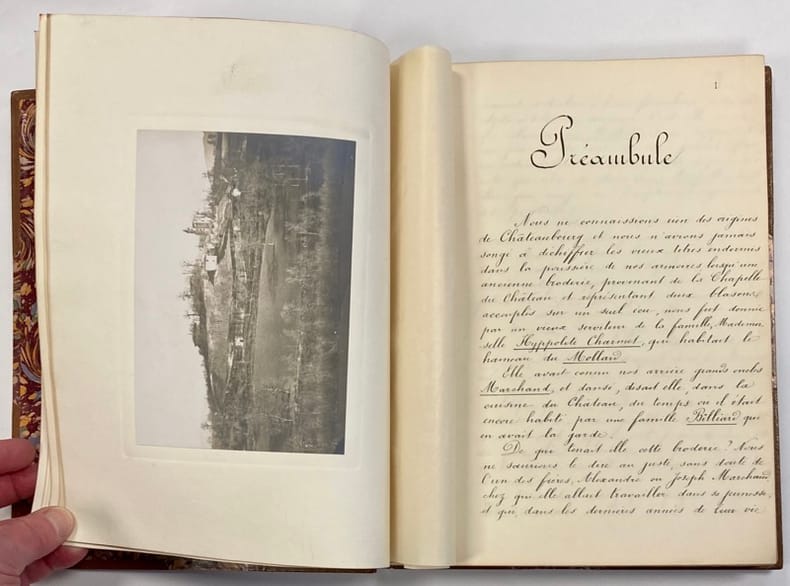 1
Préambule
Nous ne connaissions rien des origines
de Châteaubourg et nous n'avions jamais
songé à déchiffrer les vieux titres endormis
dans la poussière de nos armoires, lorsqu'une
ancienne broderie, provenant de la Chapelle
du Château et représentant deux blasons
accouplés sur un seul écu, nous fut donnée
par un vieux serviteur de la famille, Mademoi
selle Hyppolite Charmet, qui habitait le
hameau du Mollard
Elle avait connu nos arrière grands oncles
Marchand, et dansé, disait elle, dans la
cuisine du Château, du temps où il était
encore habité par une famille Billiard qui
en avait la garde.
De qui tenait elle cette broderie? Nous
ne saurions le dire au juste, sans doute de
l'un des frères, Alexandre ou Joseph Marchand
chez qui elle allait travailler dans sa jeunesse,
et qui, dans les dernières années de leur vie